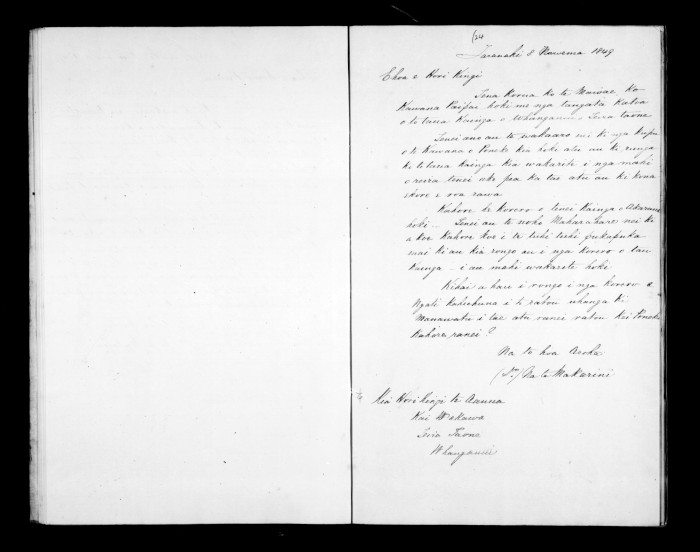 124
Taranaki 8 Nowema 1849
Ehoa e Hori Kingi
Tena Korua ko te Mawae, Ko
Kawana Paipai hoki me nga tangata katoa
o te tana Kainga o Whanganui
Tenei ano au te wakaaro nei ki nga Kupu
o te Kawana o Poneke kia hoki atu au ki runga
ki te tana Kainga kia wakarite i nga mahi
o reira tenei ake pea ka tae atu au ki kona
ekore e roa rawa
Kahore he Korero o tenei Kainga
hoki - Tenei au te noho Maharahare nei ki
a koe Kahore koe i te tuhi tuhi pukapuka
mai ki au kia rongo au i nga korero o tau
Kainga - i au mahi wakarite hoki
Kihai a hau i rongo i nga korero a
Ngati i to ratou whanga ki
Manawatu i tae atu ranei ratou kei Poneke
Kahore ranei?
Na to hoa Aroha
Na te Makarini
Kia Hori Kingi te Aanua
Kai Wakawa
Taone
Whanganui